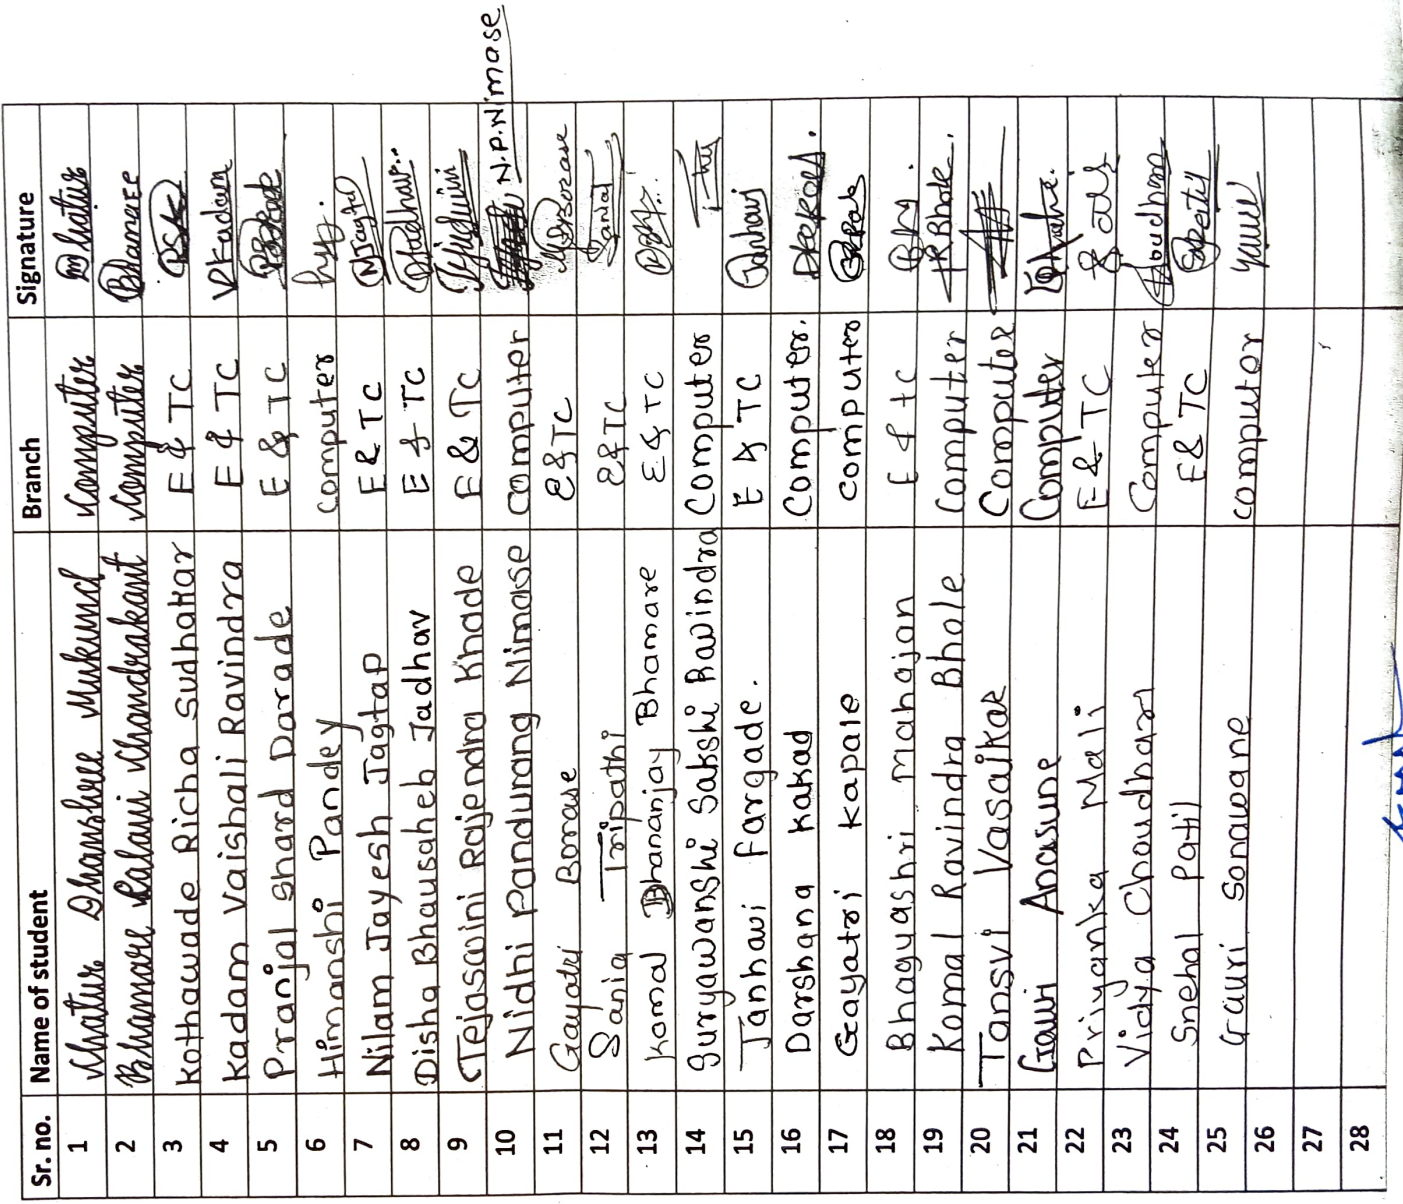 Sr. no. Name of student Branch Signature
1 Chatur Dhanshree Mukund Computer Dhatur
2 Bhamare Kalani Chandrakant Computer Bhamare
3 Kothawade Richa Sudhakar E & TC RSK
4 Kadam Vaishali Ravindra E & TC VKadam
5 Pranjal Shard Darade E & TC
6 Himanshi Pandey Computer
7 Nilam Jayesh Jagtap E & TC NJagtap
8 Disha Bhausaheb Jadhav E & TC
9 Tejaswini Rajendra Khade E & TC
10 Nidhi Pandurang Nimase Computer N.P.Nimase
11 Gayatri Borase E&TC
12 Sania Tripathi E&TC
13 Komal Dhananjay Bhamare E & TC
14 Suryawanshi Sakshi Ravindra Computer
15 Janhavi Fargade. E & TC Janhavi
16 Darshana Kakad Computer.
17 Gayatri Kapale Computer
18 Bhagyashri Mahajan E & TC
19 Komal Ravindra Bhole Computer KRBhole.
20 Tansvi Vasaikar Computer
21 Gauri Anasune Computer
22 Priyanka Mali E & TC
23 Vidya Choudhari Computer
24 Snehal Patil E & TC
25 Gauri Sonawane Computer
26
27
28